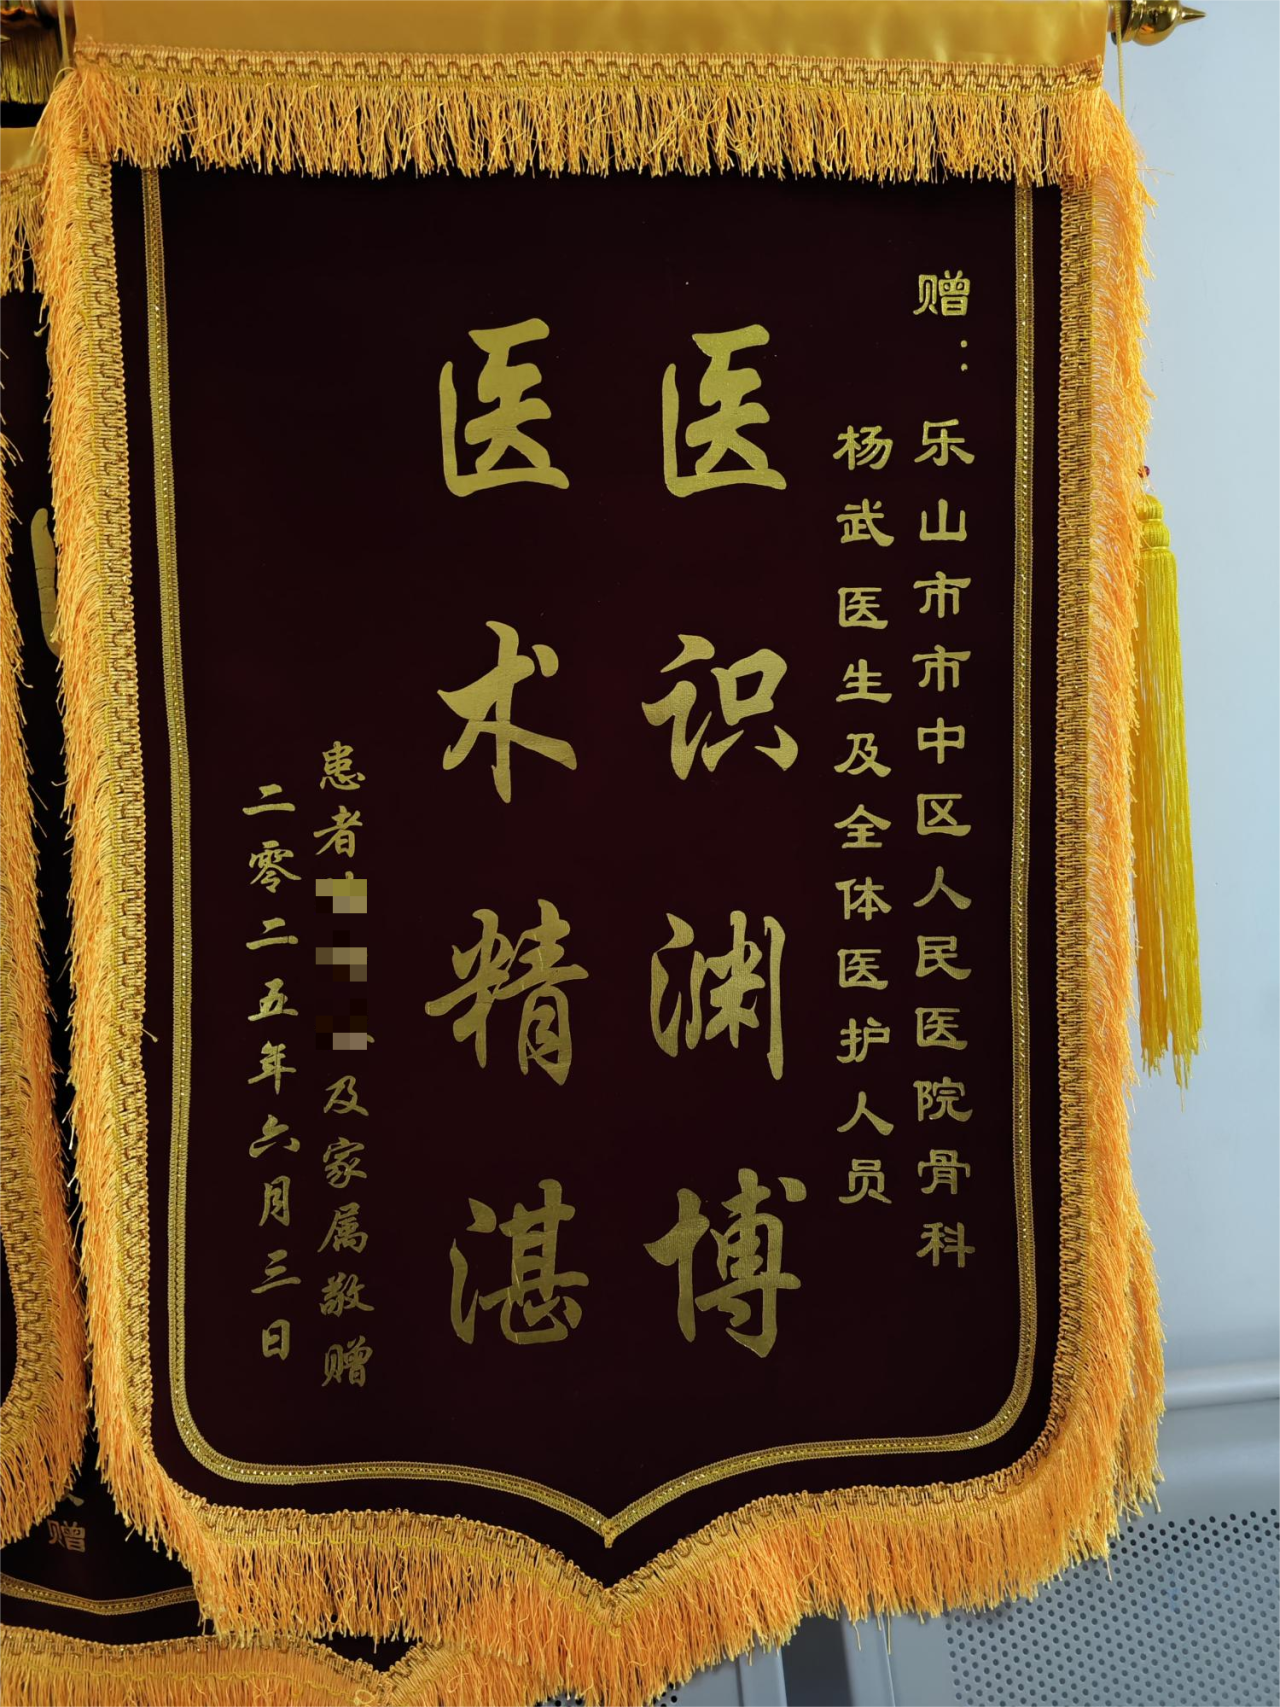 赠：乐山市市中区人民医院骨科
杨武医生及全体医护人员
医识渊博
医术精湛
患者
及家属敬赠
二零二五年六月三日
赠